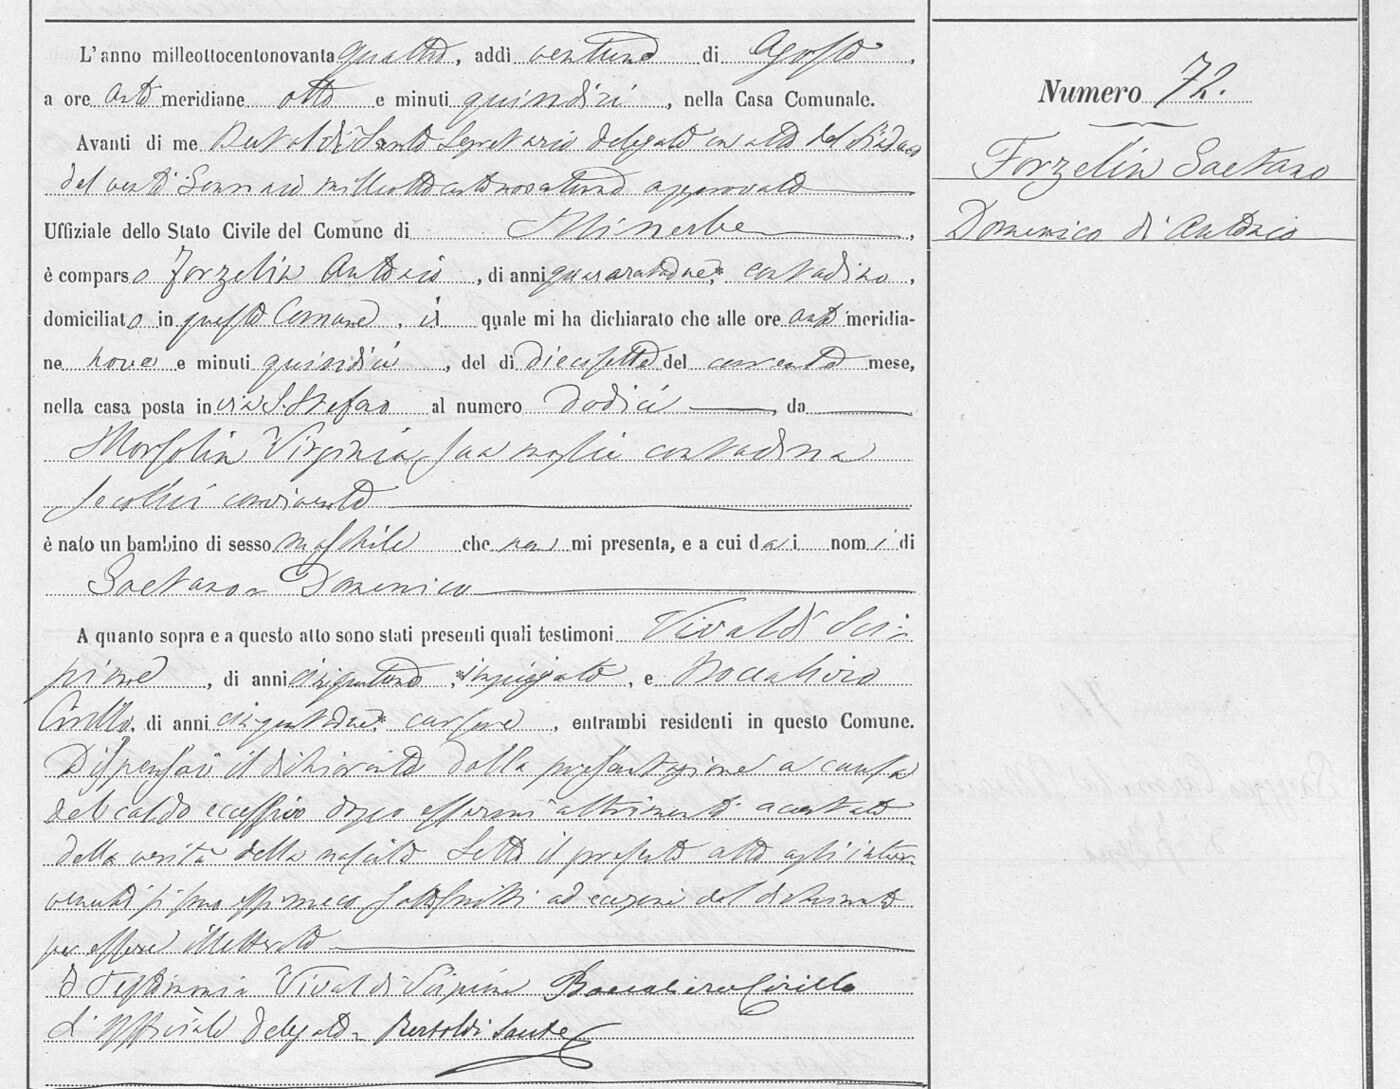 L'anno milleottocentonovanta quattro, addì ventuno di Agosto,
a ore anti meridiane otto e minuti quindici, nella Casa Comunale.
Avanti di me Bertoldi Sante Segretario delegato con atto del Sindaco
del venti Gennaio milleottocentonovantuno approvato
Uffiziale dello Stato Civile del Comune di Minerbe,
è comparso Forzelin Antonio, di anni quarantadue, contadino,
domiciliato in questo Comune, il quale mi ha dichiarato che alle ore anti meridia-
ne nove e minuti quindici, del dì diecisette del corrente mese,
nella casa posta in via S. Stefano al numero dodici, da
Morsolin Virginia sua moglie contadina
seco lui convivente
è nato un bambino di sesso maschile che non mi presenta, e a cui dà i nomi di
Gaetano Domenico
A quanto sopra e a questo atto sono stati presenti quali testimoni Vivaldi Sci-
pione, di anni cinquantuno, impiegato, e Boccaliero
Cirillo, di anni cinquantadue, cursore, entrambi residenti in questo Comune.
Dispensai il dichiarante dalla presentazione a causa
del caldo eccessivo dopo essermi altrimenti accertato
della verità della nascita. Letto il presente atto agli inter-
venuti si sono meco sottoscritti ad eccezione del dichiarante
per essere illetterato
I Testimoni Vivaldi Scipione Boccaliero Cirillo
L'Uffiziale Delegato Bertoldi Sante
Numero 72.
Forzelin Gaetano
Domenico di Antonio